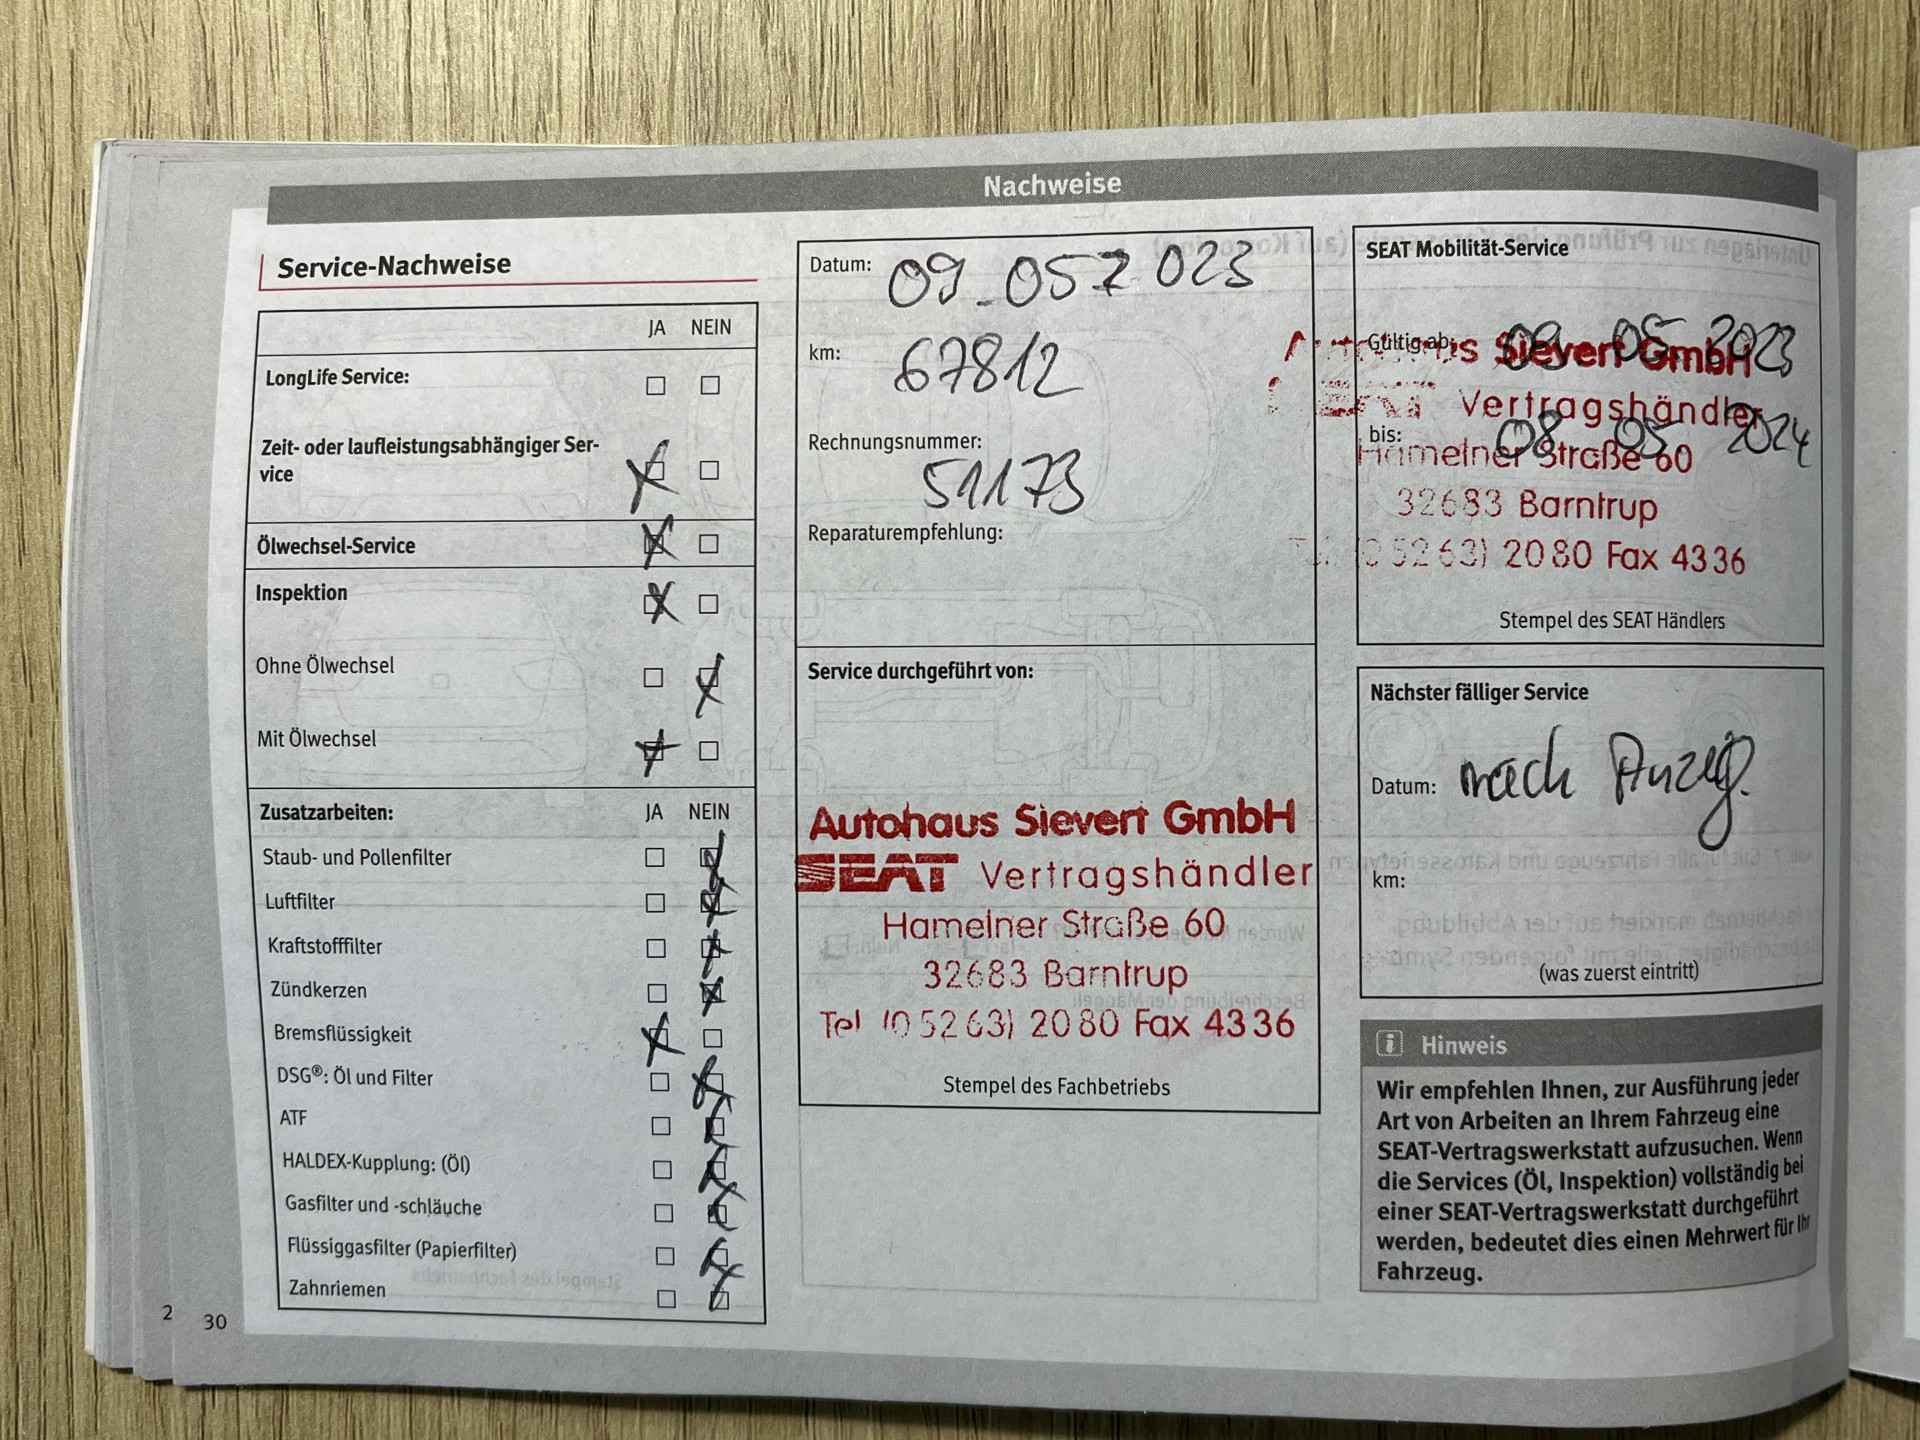 Nachweise
Service-Nachweise
JA NEIN
LongLife Service:
Zeit- oder laufleistungsabhängiger Ser-
vice
Ölwechsel-Service
Inspektion
Ohne Ölwechsel
Mit Ölwechsel
Zusatzarbeiten: JA NEIN
Staub- und Pollenfilter
Luftfilter
Kraftstofffilter
Zündkerzen
Bremsflüssigkeit
DSG®: Öl und Filter
ATF
HALDEX-Kupplung: (Öl)
Gasfilter und -schläuche
Flüssiggasfilter (Papierfilter)
Zahnriemen
2 30
Datum: 09.05.2023
km: 67812
Rechnungsnummer:
51173
Reparaturempfehlung:
Service durchgeführt von:
Autohaus Sievert GmbH
SEAT Vertragshändler
Hamelner Straße 60
32683 Barntrup
Tel (05263) 2080 Fax 4336
Stempel des Fachbetriebs
SEAT Mobilität-Service
Gültig ab: 09 05 2023
Autohaus Sievert GmbH
SEAT Vertragshändler
bis: 08 05 2024
Hamelner Straße 60
32683 Barntrup
(05263) 2080 Fax 4336
Stempel des SEAT Händlers
Nächster fälliger Service
Datum: nach Anzeig.
km:
(was zuerst eintritt)
i Hinweis
Wir empfehlen Ihnen, zur Ausführung jeder
Art von Arbeiten an Ihrem Fahrzeug eine
SEAT-Vertragswerkstatt aufzusuchen. Wenn
die Services (Öl, Inspektion) vollständig bei
einer SEAT-Vertragswerkstatt durchgeführt
werden, bedeutet dies einen Mehrwert für Ihr
Fahrzeug.